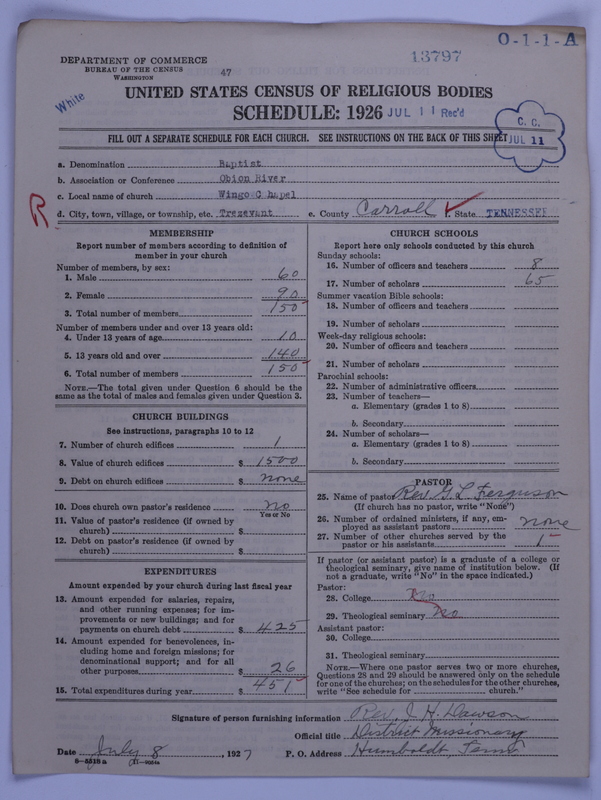 O-1-1-A
13797
DEPARTMENT OF COMMERCE
BUREAU OF THE CENSUS
WASHINGTON
47
White
UNITED STATES CENSUS OF RELIGIOUS BODIES
SCHEDULE: 1926 JUL 11 Rec'd
C. C.
JUL 11
FILL OUT A SEPARATE SCHEDULE FOR EACH CHURCH. SEE INSTRUCTIONS ON THE BACK OF THIS SHEET
a. Denomination Baptist
b. Association or Conference Obion River
c. Local name of church Wingo C hapel
R
d. City, town, village, or township, etc. Trezevant e. County Carroll f. State TENNESSEE
MEMBERSHIP
Report number of members according to definition of
member in your church
Number of members, by sex:
1. Male 60
2. Female 90
3. Total number of members 150
Number of members under and over 13 years old:
4. Under 13 years of age 10
5. 13 years old and over 140
6. Total number of members 150
NOTE.—The total given under Question 6 should be the
same as the total of males and females given under Question 3.
CHURCH BUILDINGS
See instructions, paragraphs 10 to 12
7. Number of church edifices 1
8. Value of church edifices $ 1500
9. Debt on church edifices $ none
10. Does church own pastor's residence no
Yes or No
11. Value of pastor's residence (if owned by
church) $
12. Debt on pastor's residence (if owned by
church) $
EXPENDITURES
Amount expended by your church during last fiscal year
13. Amount expended for salaries, repairs,
and other running expenses; for im-
provements or new buildings; and for
payments on church debt $ 425
14. Amount expended for benevolences, in-
cluding home and foreign missions; for
denominational support; and for all
other purposes $ 26
15. Total expenditures during year $ 451
CHURCH SCHOOLS
Report here only schools conducted by this church
Sunday schools:
16. Number of officers and teachers 8
17. Number of scholars 65
Summer vacation Bible schools:
18. Number of officers and teachers
19. Number of scholars
Week-day religious schools:
20. Number of officers and teachers
21. Number of scholars
Parochial schools:
22. Number of administrative officers
23. Number of teachers—
a. Elementary (grades 1 to 8)
b. Secondary
24. Number of scholars—
a. Elementary (grades 1 to 8)
b. Secondary
PASTOR
25. Name of pastor Rev. G. L. Ferguson
(If church has no pastor, write "None")
26. Number of ordained ministers, if any, em-
ployed as assistant pastors none
27. Number of other churches served by the
pastor or his assistants 1
If pastor (or assistant pastor) is a graduate of a college or
theological seminary, give name of institution below. (If
not a graduate, write "No" in the space indicated.)
Pastor:
28. College No
29. Theological seminary No
Assistant pastor:
30. College
31. Theological seminary
NOTE.—Where one pastor serves two or more churches,
Questions 28 and 29 should be answered only on the schedule
for one of the churches; on the schedules for the other churches,
write "See schedule for church."
Signature of person furnishing information Rev. J. H. Dawson
Official title District Missionary
Date July 8, 1927 P. O. Address Humboldt, Tenn